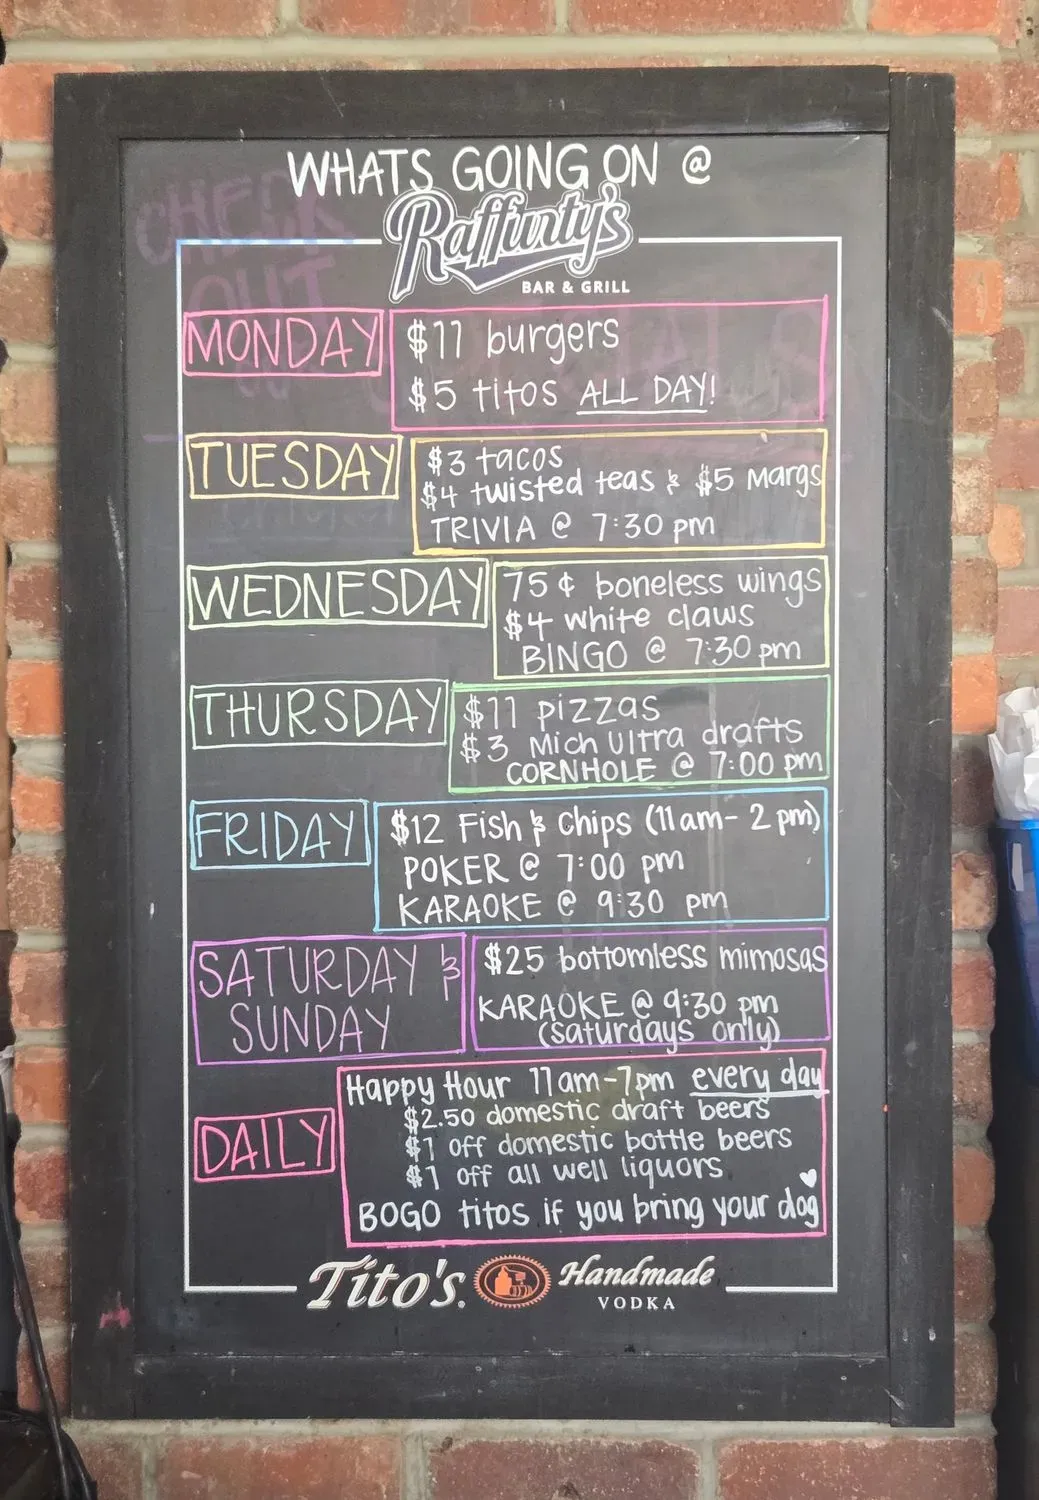 WHATS GOING ON @
Raffurty's
BAR & GRILL
MONDAY
$11 burgers
$5 titos ALL DAY!
TUESDAY
$3 tacos
$4 twisted teas & $5 Margs
TRIVIA @ 7:30 pm
WEDNESDAY
75¢ boneless wings
$4 white claws
BINGO @ 7:30 pm
THURSDAY
$11 pizzas
$3 Mich Ultra drafts
CORNHOLE @ 7:00 pm
FRIDAY
$12 Fish & Chips (11am-2pm)
POKER @ 7:00 pm
KARAOKE @ 9:30 pm
SATURDAY &
SUNDAY
$25 bottomless mimosas
KARAOKE @ 9:30 pm
(saturdays only)
DAILY
Happy Hour 11am-7pm every day
$2.50 domestic draft beers
$1 off domestic bottle beers
$1 off all well liquors
BOGO titos if you bring your dog
Tito's Handmade
VODKA